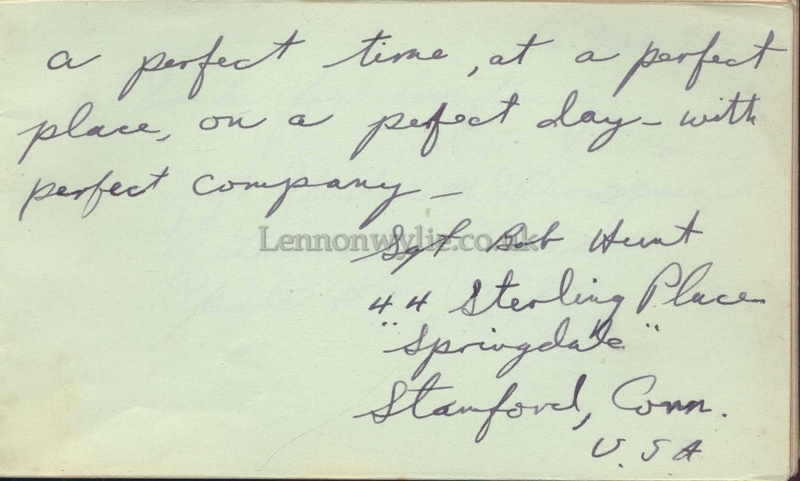 a perfect time, at a perfect
place, on a perfect day - with
perfect company -
Lennonwylie.co.uk
Sgt Bob Hunt
44 Sterling Place
"Springdale"
Stamford, Conn.
U.S.A